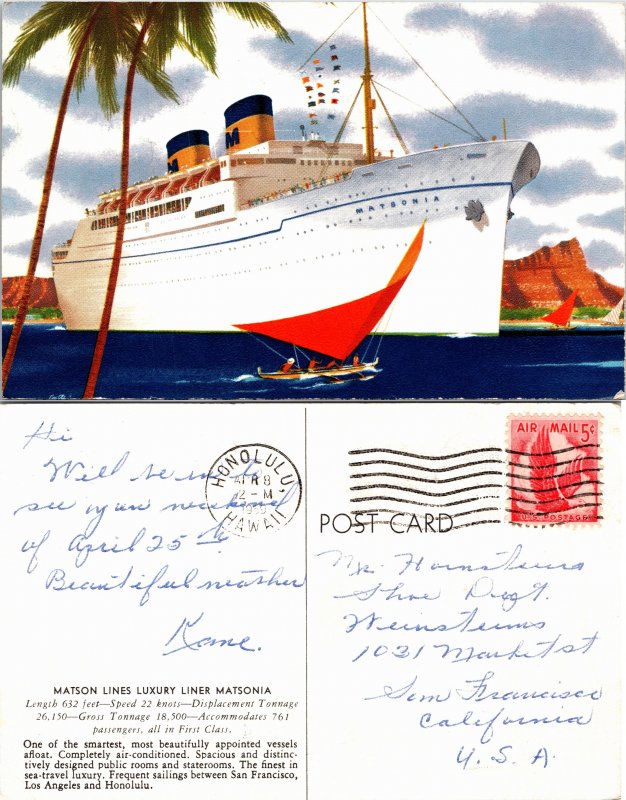 MATSONIA
M
M
Hi
Will be in to
see you weekend
of April 25th.
Beautiful weather
Kane.
HONOLULU
APR 8
12-M
HAWAII
AIR MAIL 5¢
U.S. POSTAGE
POST CARD
Mr. Hornsteins
Shoe Dept.
Weinsteins
1031 Market st
San Francisco
California
U. S. A.
MATSON LINES LUXURY LINER MATSONIA
Length 632 feet—Speed 22 knots—Displacement Tonnage
26,150—Gross Tonnage 18,500—Accommodates 761
passengers, all in First Class.
One of the smartest, most beautifully appointed vessels
afloat. Completely air-conditioned. Spacious and distinc-
tively designed public rooms and staterooms. The finest in
sea-travel luxury. Frequent sailings between San Francisco,
Los Angeles and Honolulu.